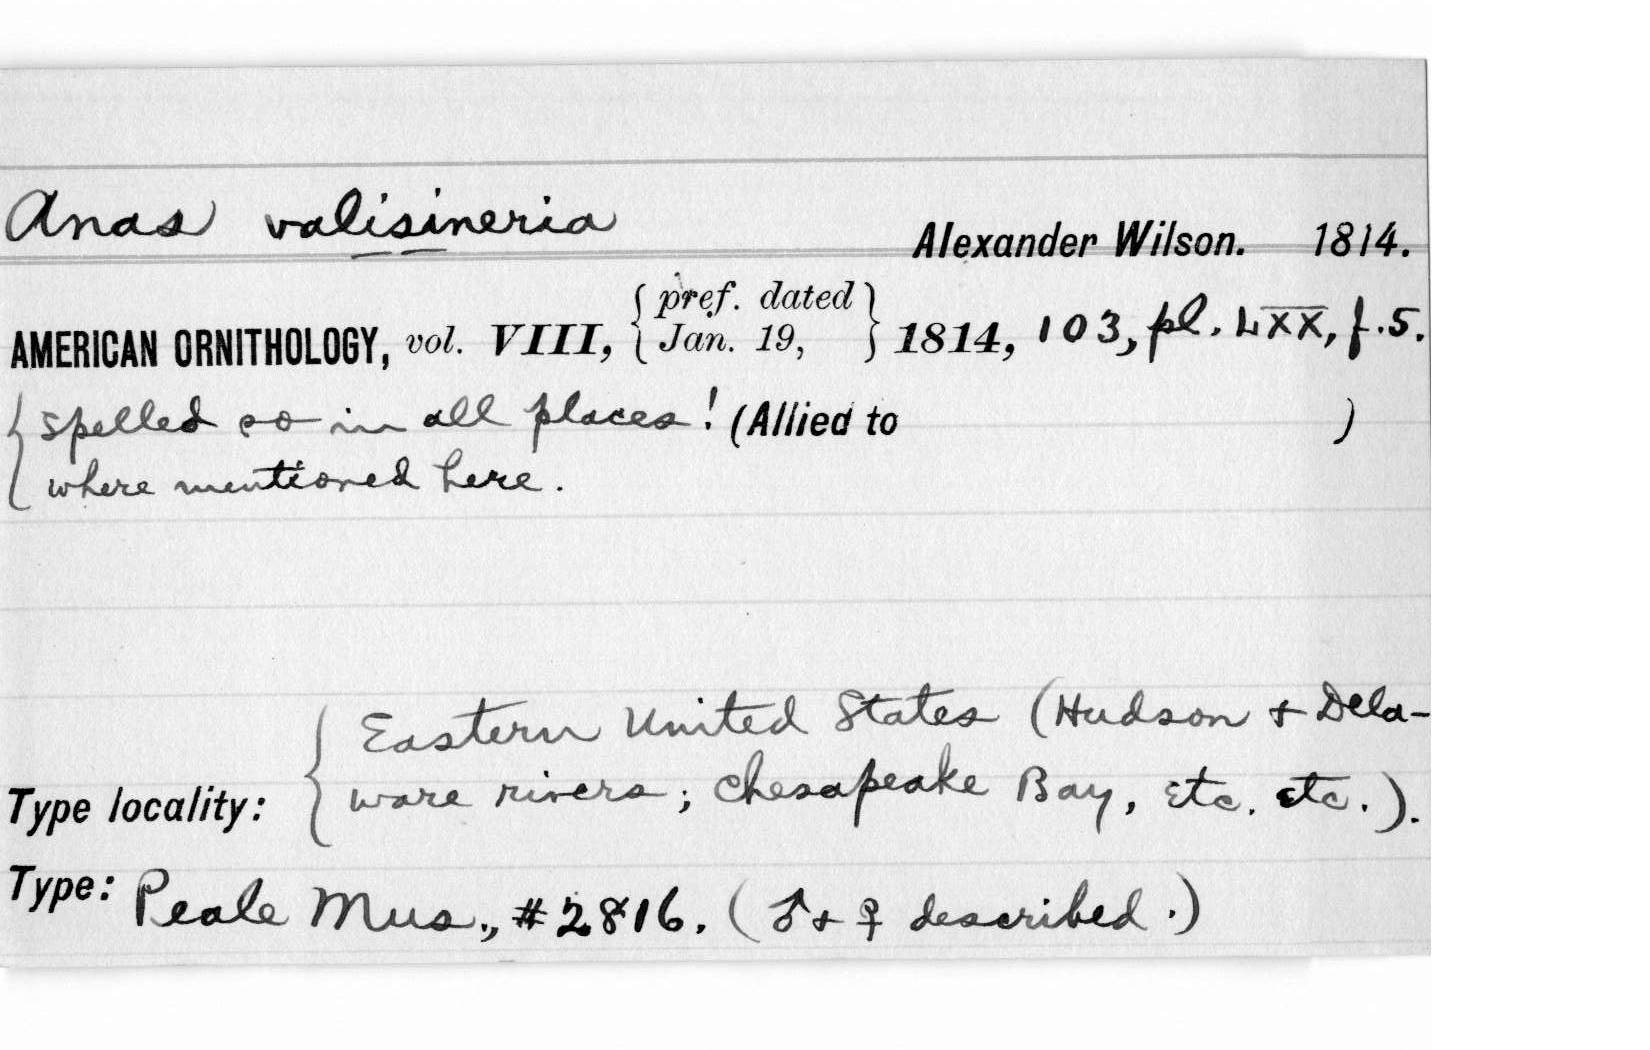 Anas valisineria
Alexander Wilson. 1814.
AMERICAN ORNITHOLOGY, vol. VIII, { pref. dated Jan. 19, } 1814, 103, pl. LXX, f. 5.
{ spelled so in all places! (Allied to )
where mentioned here.
{ Eastern United States (Hudson + Dela-
Type locality: ware rivers; Chesapeake Bay, etc. etc.).
Type: Peale Mus., #2816. (♂ + ♀ described.)